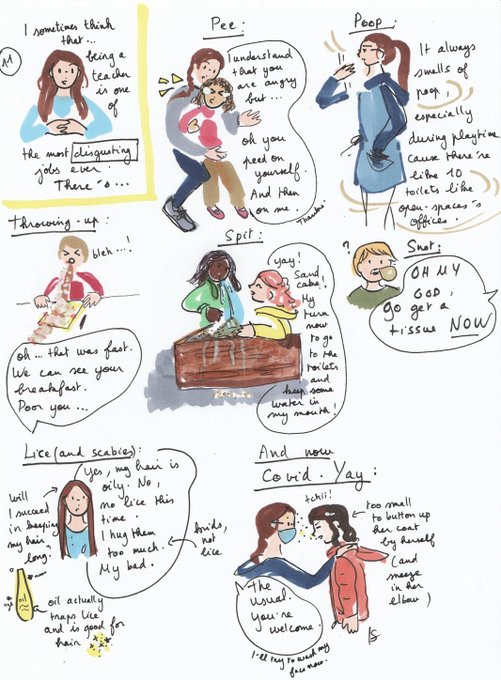 11
I sometimes think
that...
being a
teacher
is one
of
the most disgusting
jobs ever.
There's...
Pee:
I understand
that you
are angry
but...
oh you
peed on
yourself.
And then
on me.
Thanks.
Poop:
It always
smells of
poop
especially
during playtime
cause there're
like 10
toilets like
open-spaces
offices.
Throwing-up:
bleh...!
oh... that was fast.
We can see your
breakfast.
Poor you...
Spit:
yay!
Sand
cake!
My
turn
now
to go
to the
toilets
and
keep some
water in
my mouth!
Snot:
?
OH MY
GOD,
go get a
tissue NOW
Lice (and scabies):
Will
I succeed
in keeping
my hair
long?
Yes, my hair is
oily. No,
no lice this
time.
I hug them
too much.
My bad.
kids,
not
lice
oil
oil actually
traps lice
and is good for
hair
And now
Covid. Yay:
tchii!
too small
to button up
her coat
by herself
(and
sneeze
in her
elbow)
The
usual.
You're
welcome.
I'll try to wash my
face now.